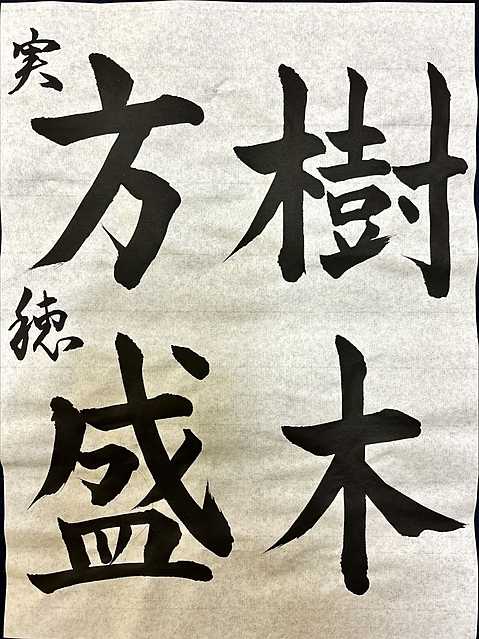 樹木
方盛
実穂